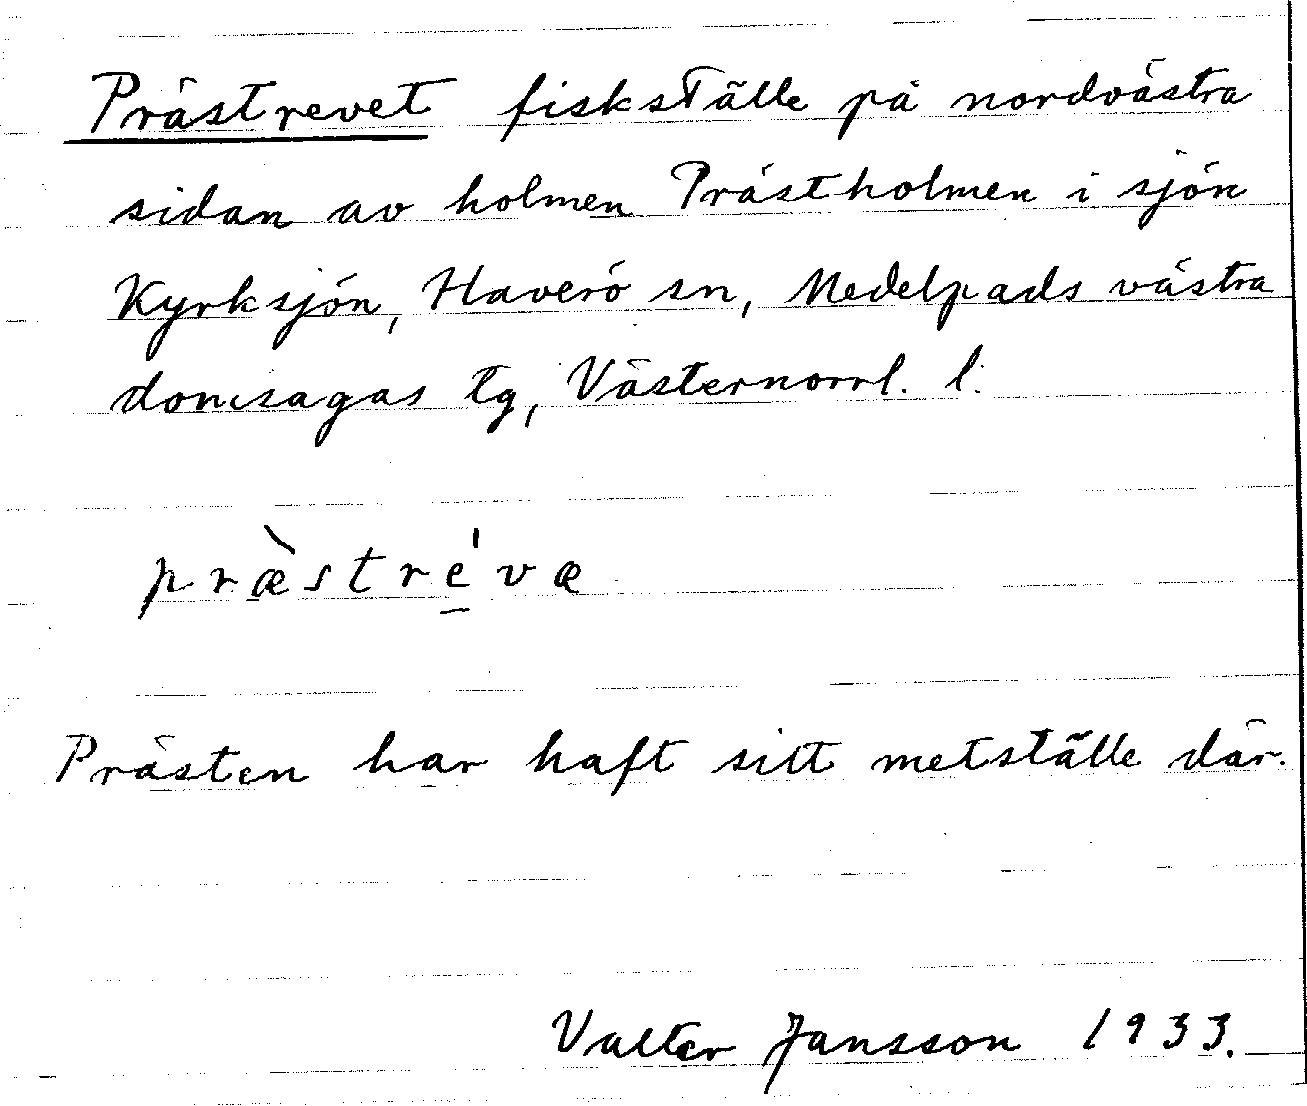 Prästrevet fiskställe på nordvästra
sidan av holmen Prästholmen i sjön
Kyrksjön, Haverö sn, Medelpads västra
domsagas tg, Västernorrl. l.
præ̀stre̍væ
Prästen har haft sitt metställe där.
Valter Jansson 1933.